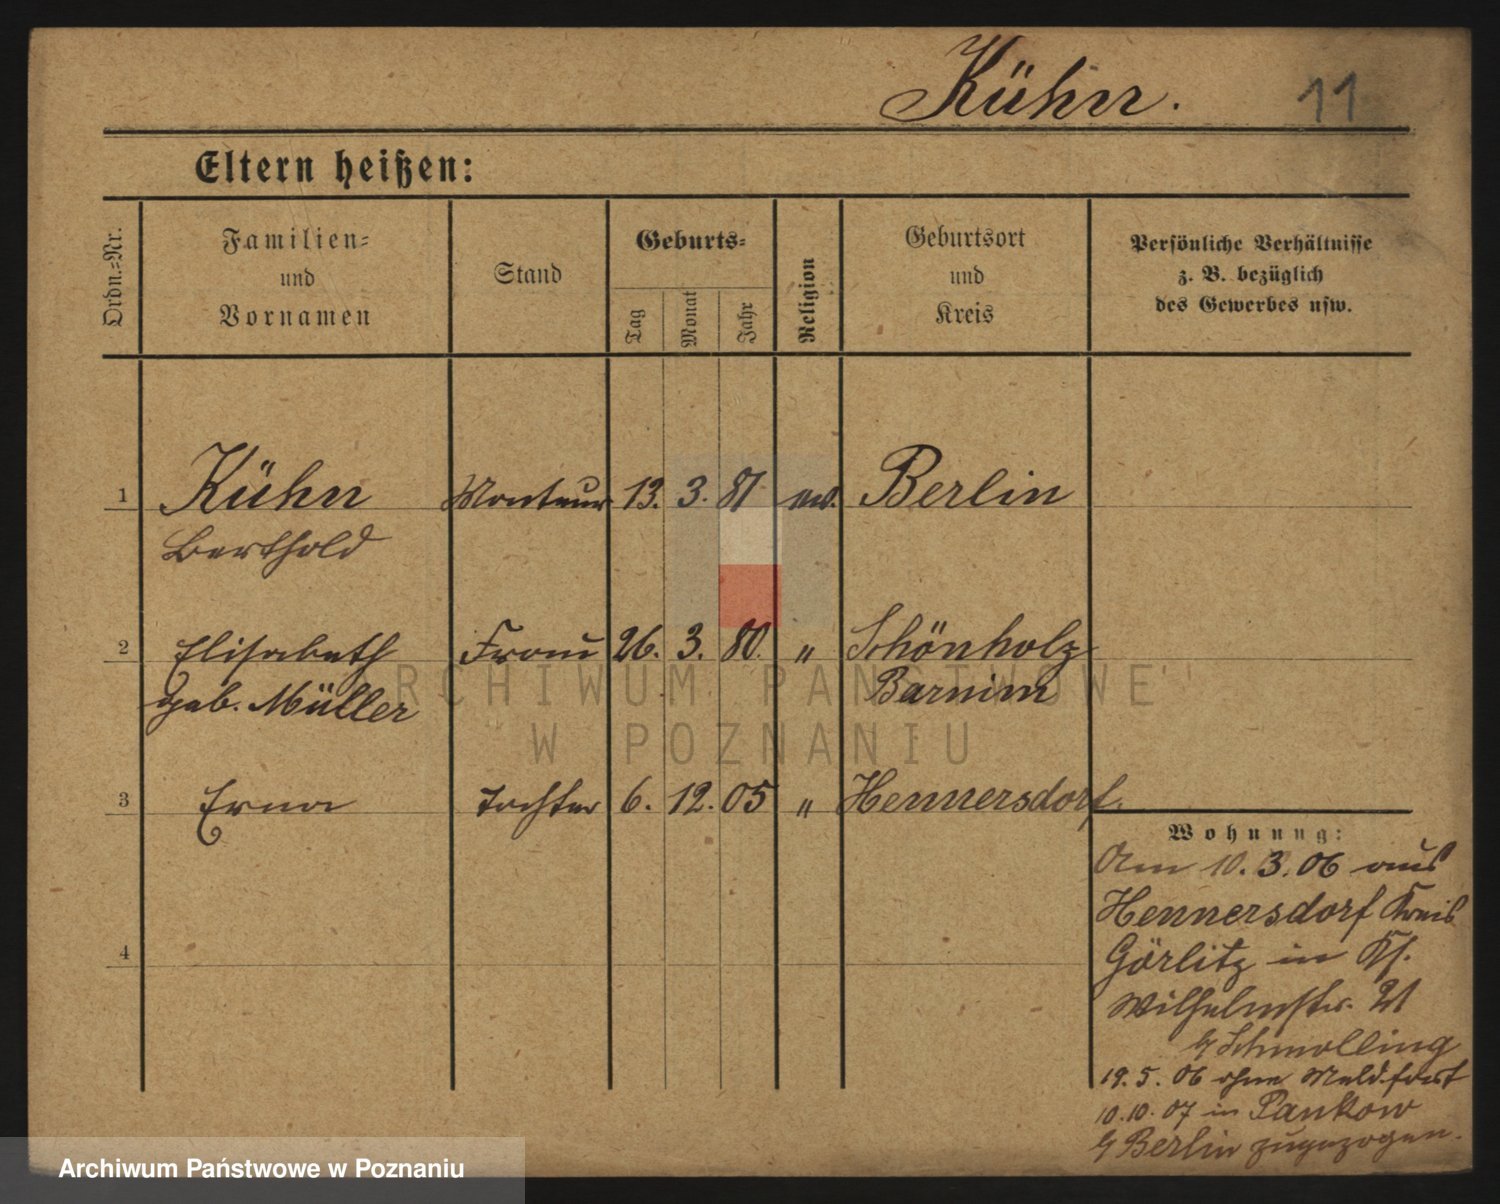 Kühn. 11
Eltern heißen:
Ordn.=Nr.
Familien=
und
Vornamen
Stand
Geburts=
Tag
Monat
Jahr
Religion
Geburtsort
und
Kreis
Persönliche Verhältnisse
z. B. bezüglich
des Gewerbes usw.
1 Kühn Monteur 13. 3. 81 ev. Berlin
Berthold
2 Elisabeth Frau 26. 3. 80. " Schönholz
geb. Müller Barnim
3 Erna Tochter 6. 12. 05 " Hennersdorf.
4
Wohnung:
Am 10. 3. 06 aus
Hennersdorf Kreis
Görlitz in
Wilhelmstr. 21
b/ Schmolling
19. 5. 06 ohne Meld. fort
10. 10. 07 in Pankow
b/ Berlin zugezogen.
ARCHIWUM PAŃSTWOWE
W POZNANIU
Archiwum Państwowe w Poznaniu